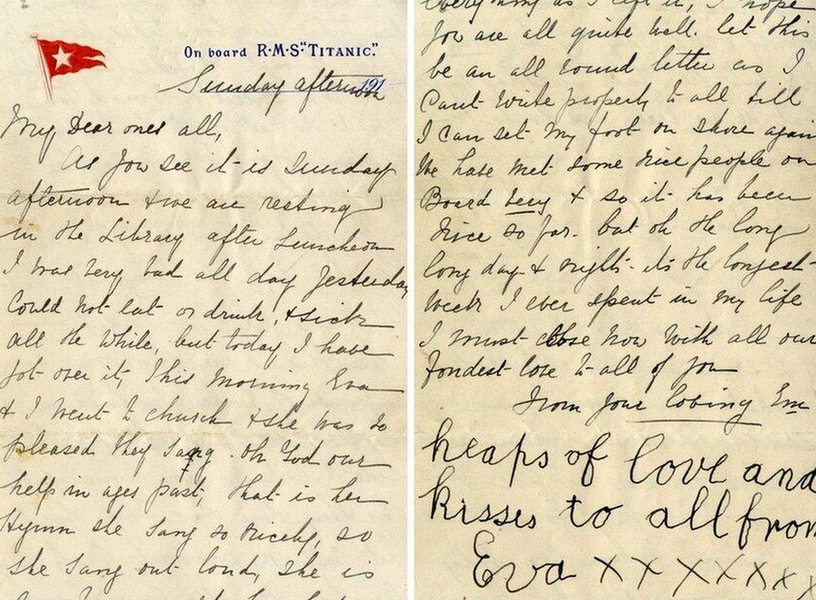 On board R·M·S·"TITANIC."
191
Sunday afternoon
My Dear ones all,
As you see it is Sunday
afternoon & we are resting
in the Library after Luncheon
I was very bad all day yesterday
Could not eat or drink, & sick
all the while, but today I have
got over it, This morning Eva
& I went to church & she was so
pleased they sang. Oh God our
help in ages past, that is her
Hymn she sang so nicely, so
she sang out loud, she is
everything as I left it, I hope
you are all quite well. let this
be an all round letter as I
Cant write properly to all till
I can set my foot on shore again
We have met some nice people on
Board Lucy & so it has been
nice so far. but oh the long
long day & nights. its the longest
week I ever spent in my life
I must close now with all our
fondest love to all of you
From your loving Em
heaps of love and
kisses to all from
Eva x x x x x x x